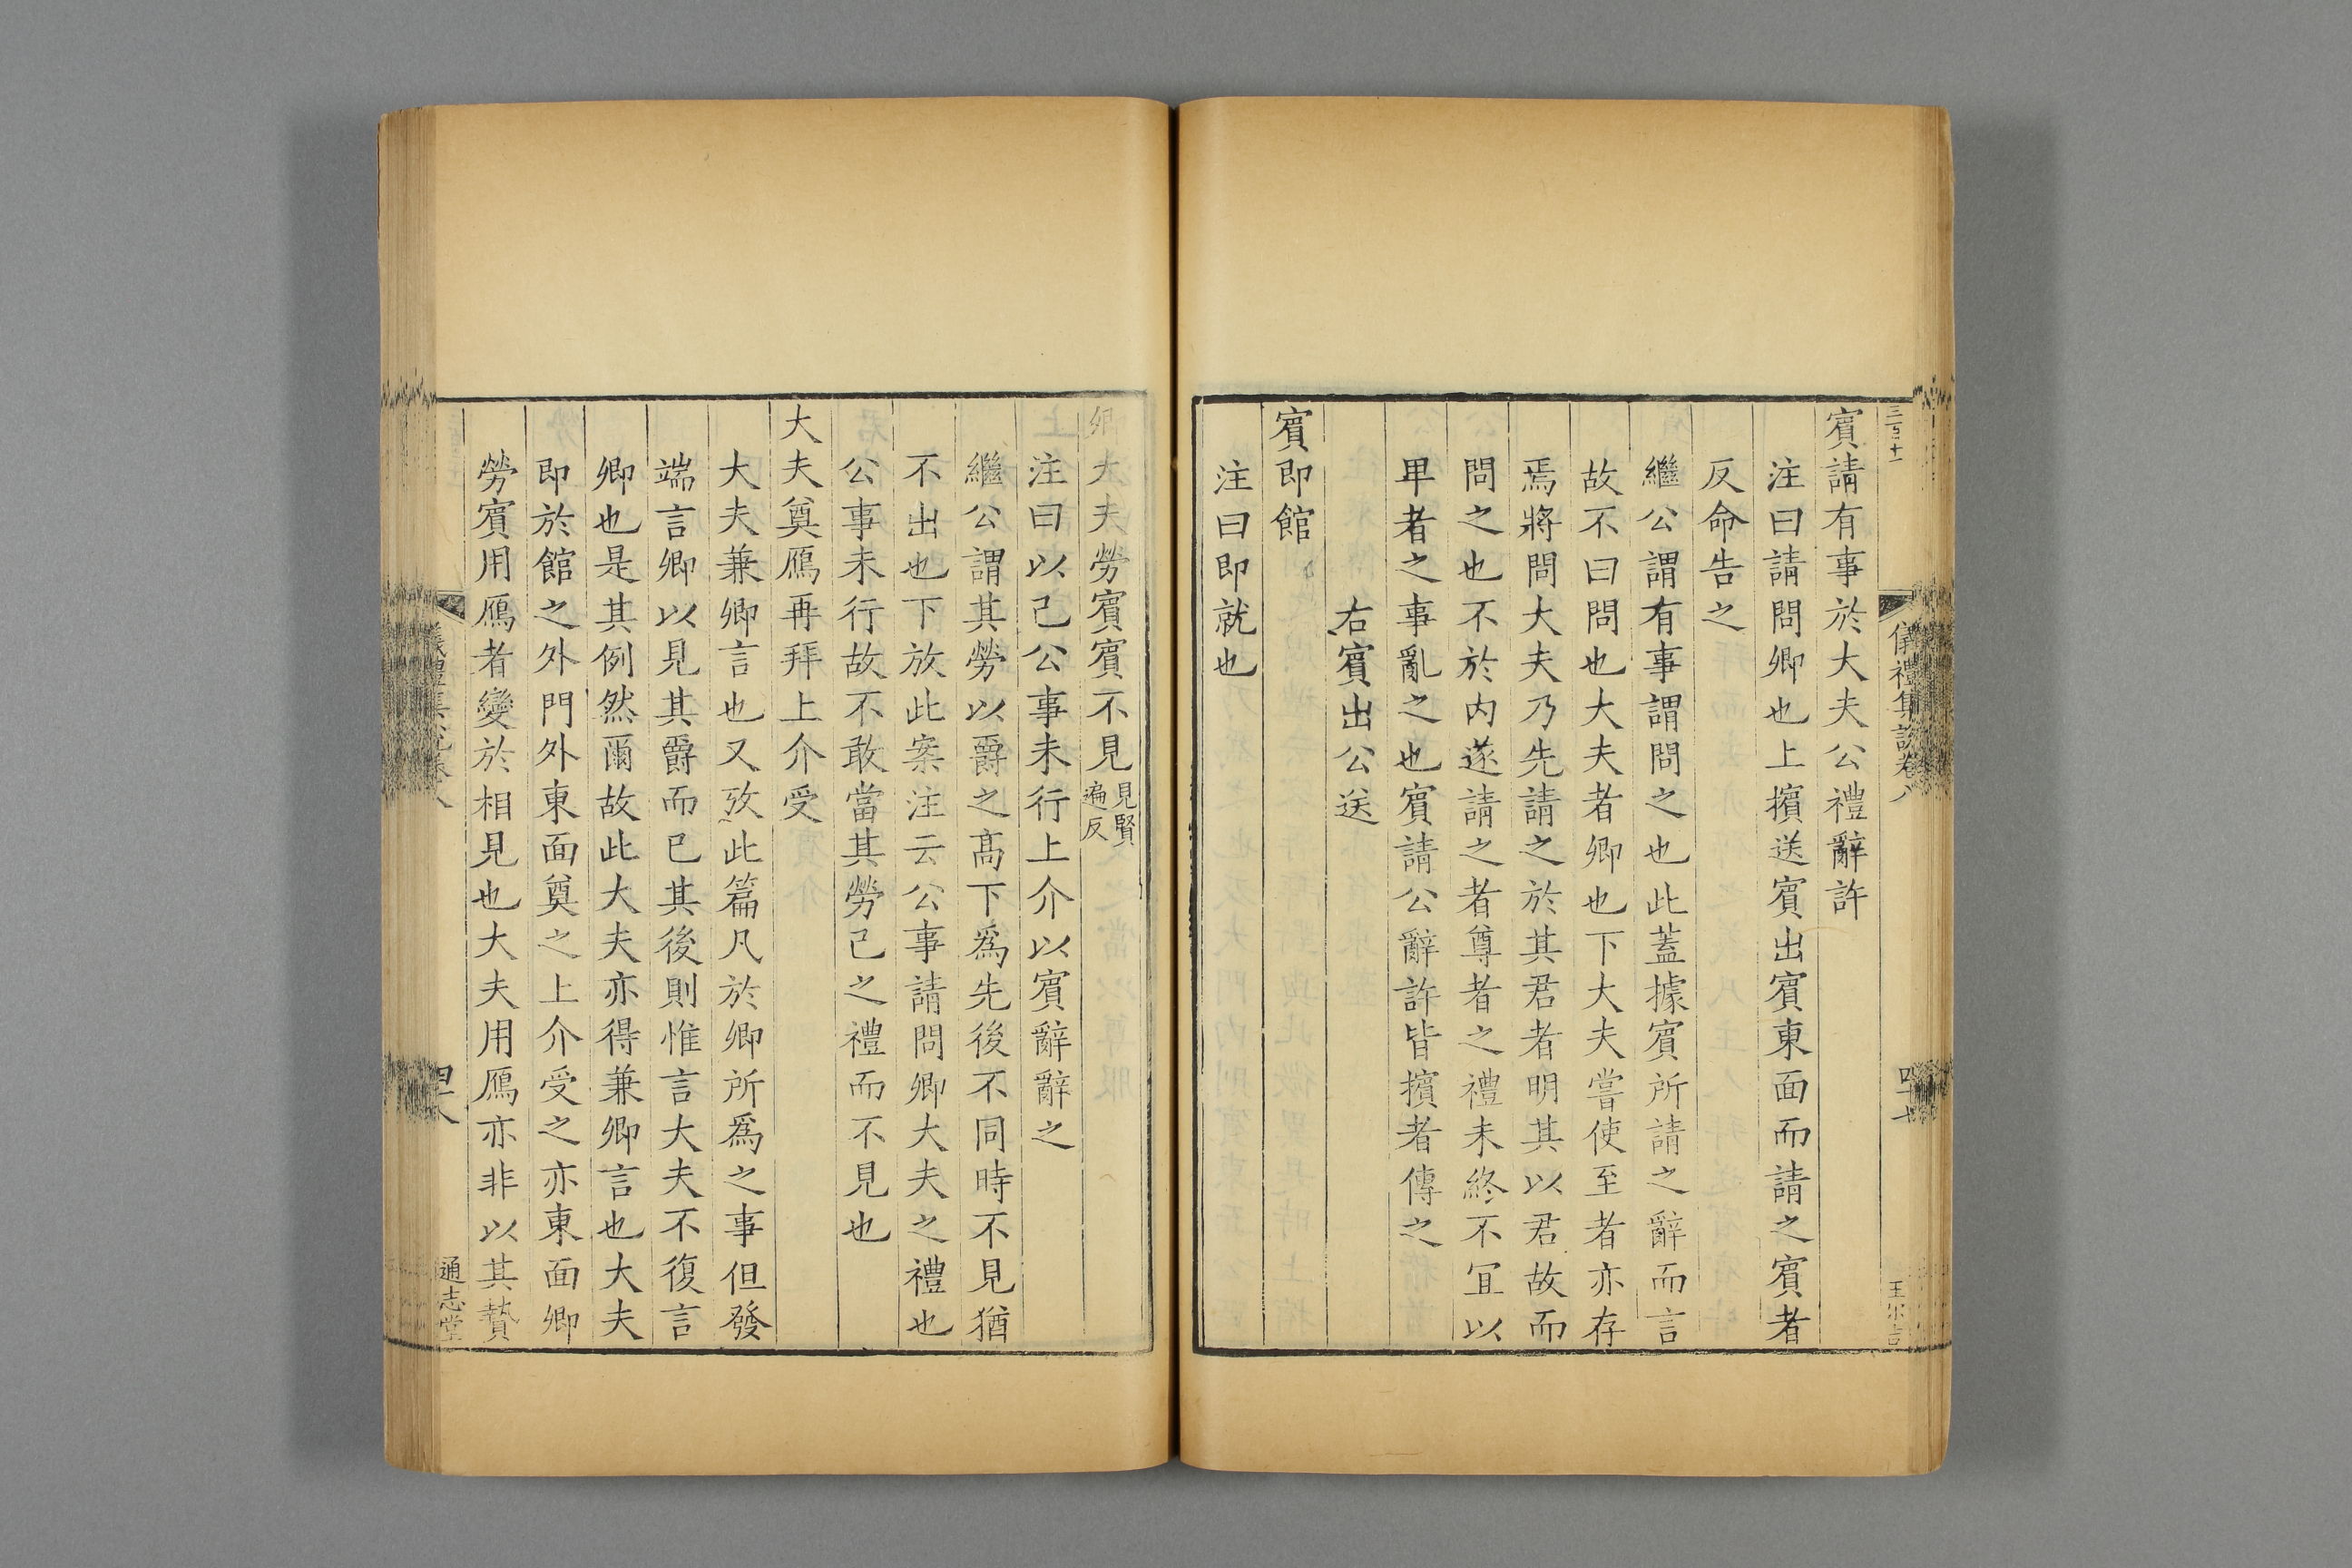 三百十一
儀禮集說卷八
四十七
王尔言
賔請有事於大夫公禮辭許
注曰請問卿也上擯送賔出賔東面而請之賔者
反命告之
繼公謂有事謂問之也此蓋據賔所請之辭而言
故不曰問也大夫者卿也下大夫嘗使至者亦存
焉將問大夫乃先請之於其君者明其以君故而
問之也不於内遂請之者尊者之禮未終不冝以
卑者之事亂之也賔請公辭許皆擯者傳之
右賔出公送
賔即館
注曰即就也
卿大夫勞賔賔不見見賢遍反
注曰以己公事未行上介以賔辭辭之
繼公謂其勞以爵之髙下爲先後不同時不見猶
不出也下放此案注云公事請問卿大夫之禮也
公事未行故不敢當其勞己之禮而不見也
大夫奠鴈再拜上介受
大夫兼卿言也又攷此篇凡於卿所爲之事但發
端言卿以見其爵而已其後則惟言大夫不復言
卿也是其例然爾故此大夫亦得兼卿言也大夫
即於館之外門外東面奠之上介受之亦東面卿
勞賔用鴈者變於相見也大夫用鴈亦非以其贄
通志堂